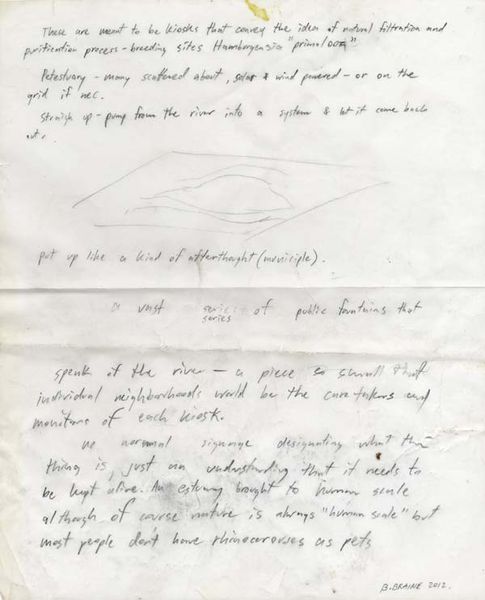 These are meant to be kiosks that convey the idea of natural filtration and
purification process - breeding sites Hamburgensia "primal ooze"
Petestuary - many scattered about, solar & wind powered - or on the
grid if nec.
Straight up - pump from the river into a system & let it come back
out.
put up like a kind of afterthought (municiple).
a vast series of public fountains that
series
speak of the river - a piece so small that
individual neighborhoods would be the caretakers and
monitors of each kiosk.
no normal signage designating what the
thing is, just an understanding that it needs to
be kept alive. An estuary brought to human scale
although of course nature is always "human scale" but
most people dont have rhinocerouses as pets
B. BRAINE 2012.